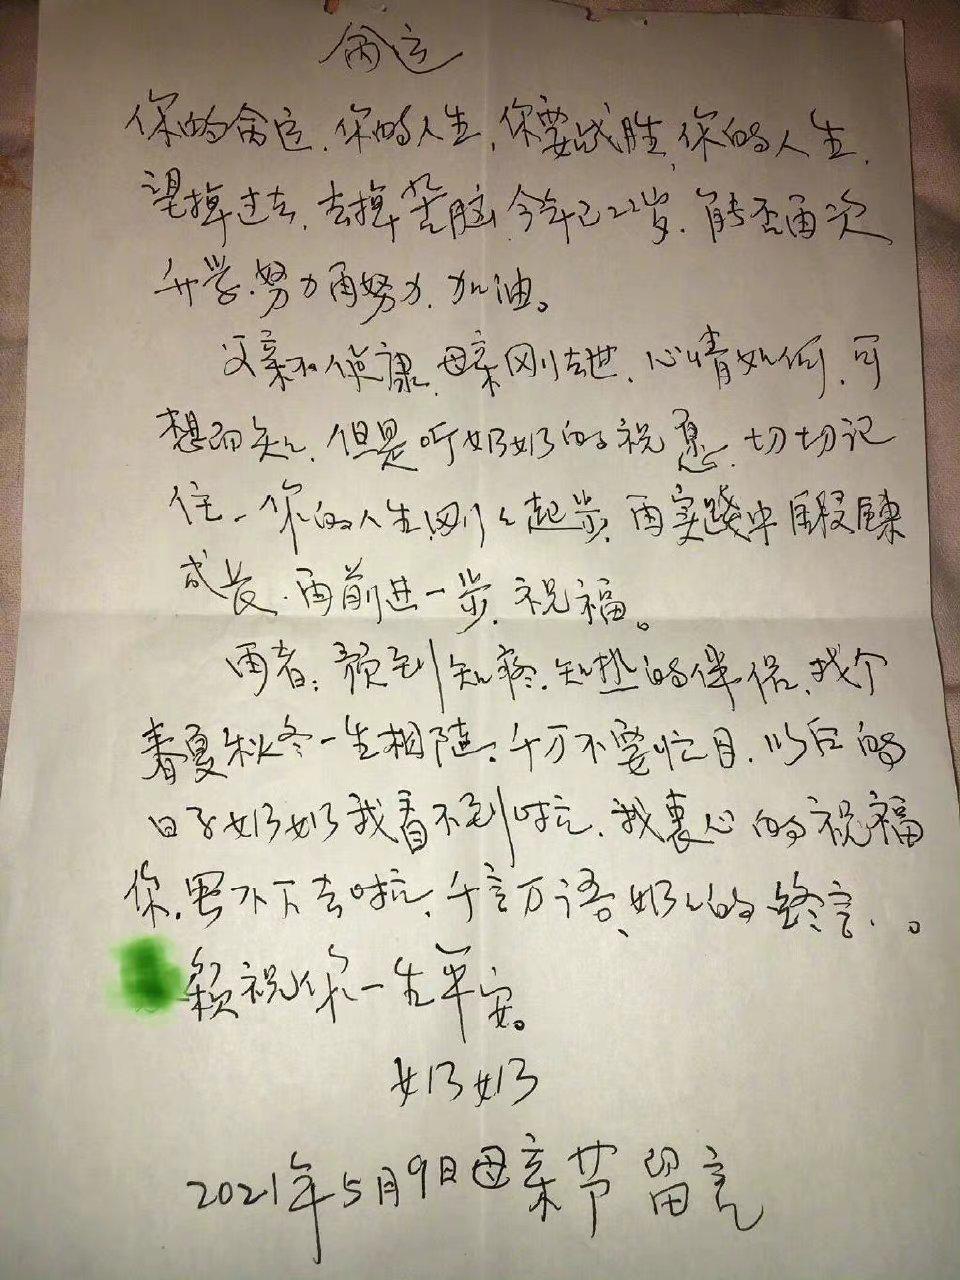 命运
你的命运，你的人生，你要战胜，你的人生，
望掉过去，去掉苦脑，今年已22岁，能否再次
升学，努力再努力，加油。
父亲不健康，母亲刚去世，心情如何，可
想而知，但是听奶奶的祝愿，切切记
住，你的人生刚刚起步，再实践中锻炼
成长，再前进一步，祝福。
再者：领到知疼，知热的伴侣，找个
春夏秋冬一生相随，千万不要忙目，以后的
日子奶奶我看不到啦，我衷心的祝福
你，写不下去啦，千言万语，奶奶的终言，。
祝你一生平安。
奶奶
2021年5月9日母亲节留言